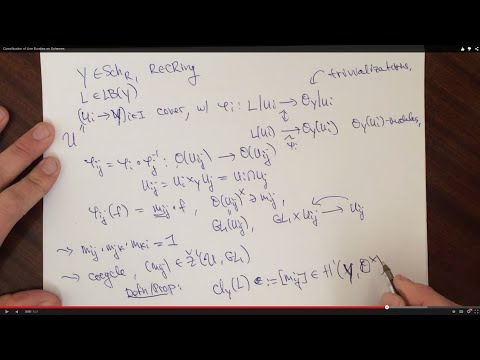 Classification of Line Bundles on Schemes
Y ∈ Sch_R, R ∈ Ring
trivializations,
L ∈ LB(Y)
(U_i → Y)_{i∈I} cover, w/ φ_i : L|U_i → O_Y|U_i
U
L(U_i) → O_Y(U_i) O_Y(U_i)-modules,
φ_i
φ_ij = φ_i ∘ φ_j^{-1} : O(U_ij) → O(U_ij)
U_ij = U_i ×_Y U_j = U_i ∩ U_j
φ_ij(f) = m_ij · f, O(U_ij)^× ∋ m_ij
GL_1(U_ij)
GL_1 × U_ij → U_ij
→ m_ij · m_jk · m_ki = 1
→ cocycle, (m_ij) ∈ Ž^1(U, GL_1)
Defn/Prop: cl_Y(L) := [m_ij] ∈ H^1(Y, O^×)